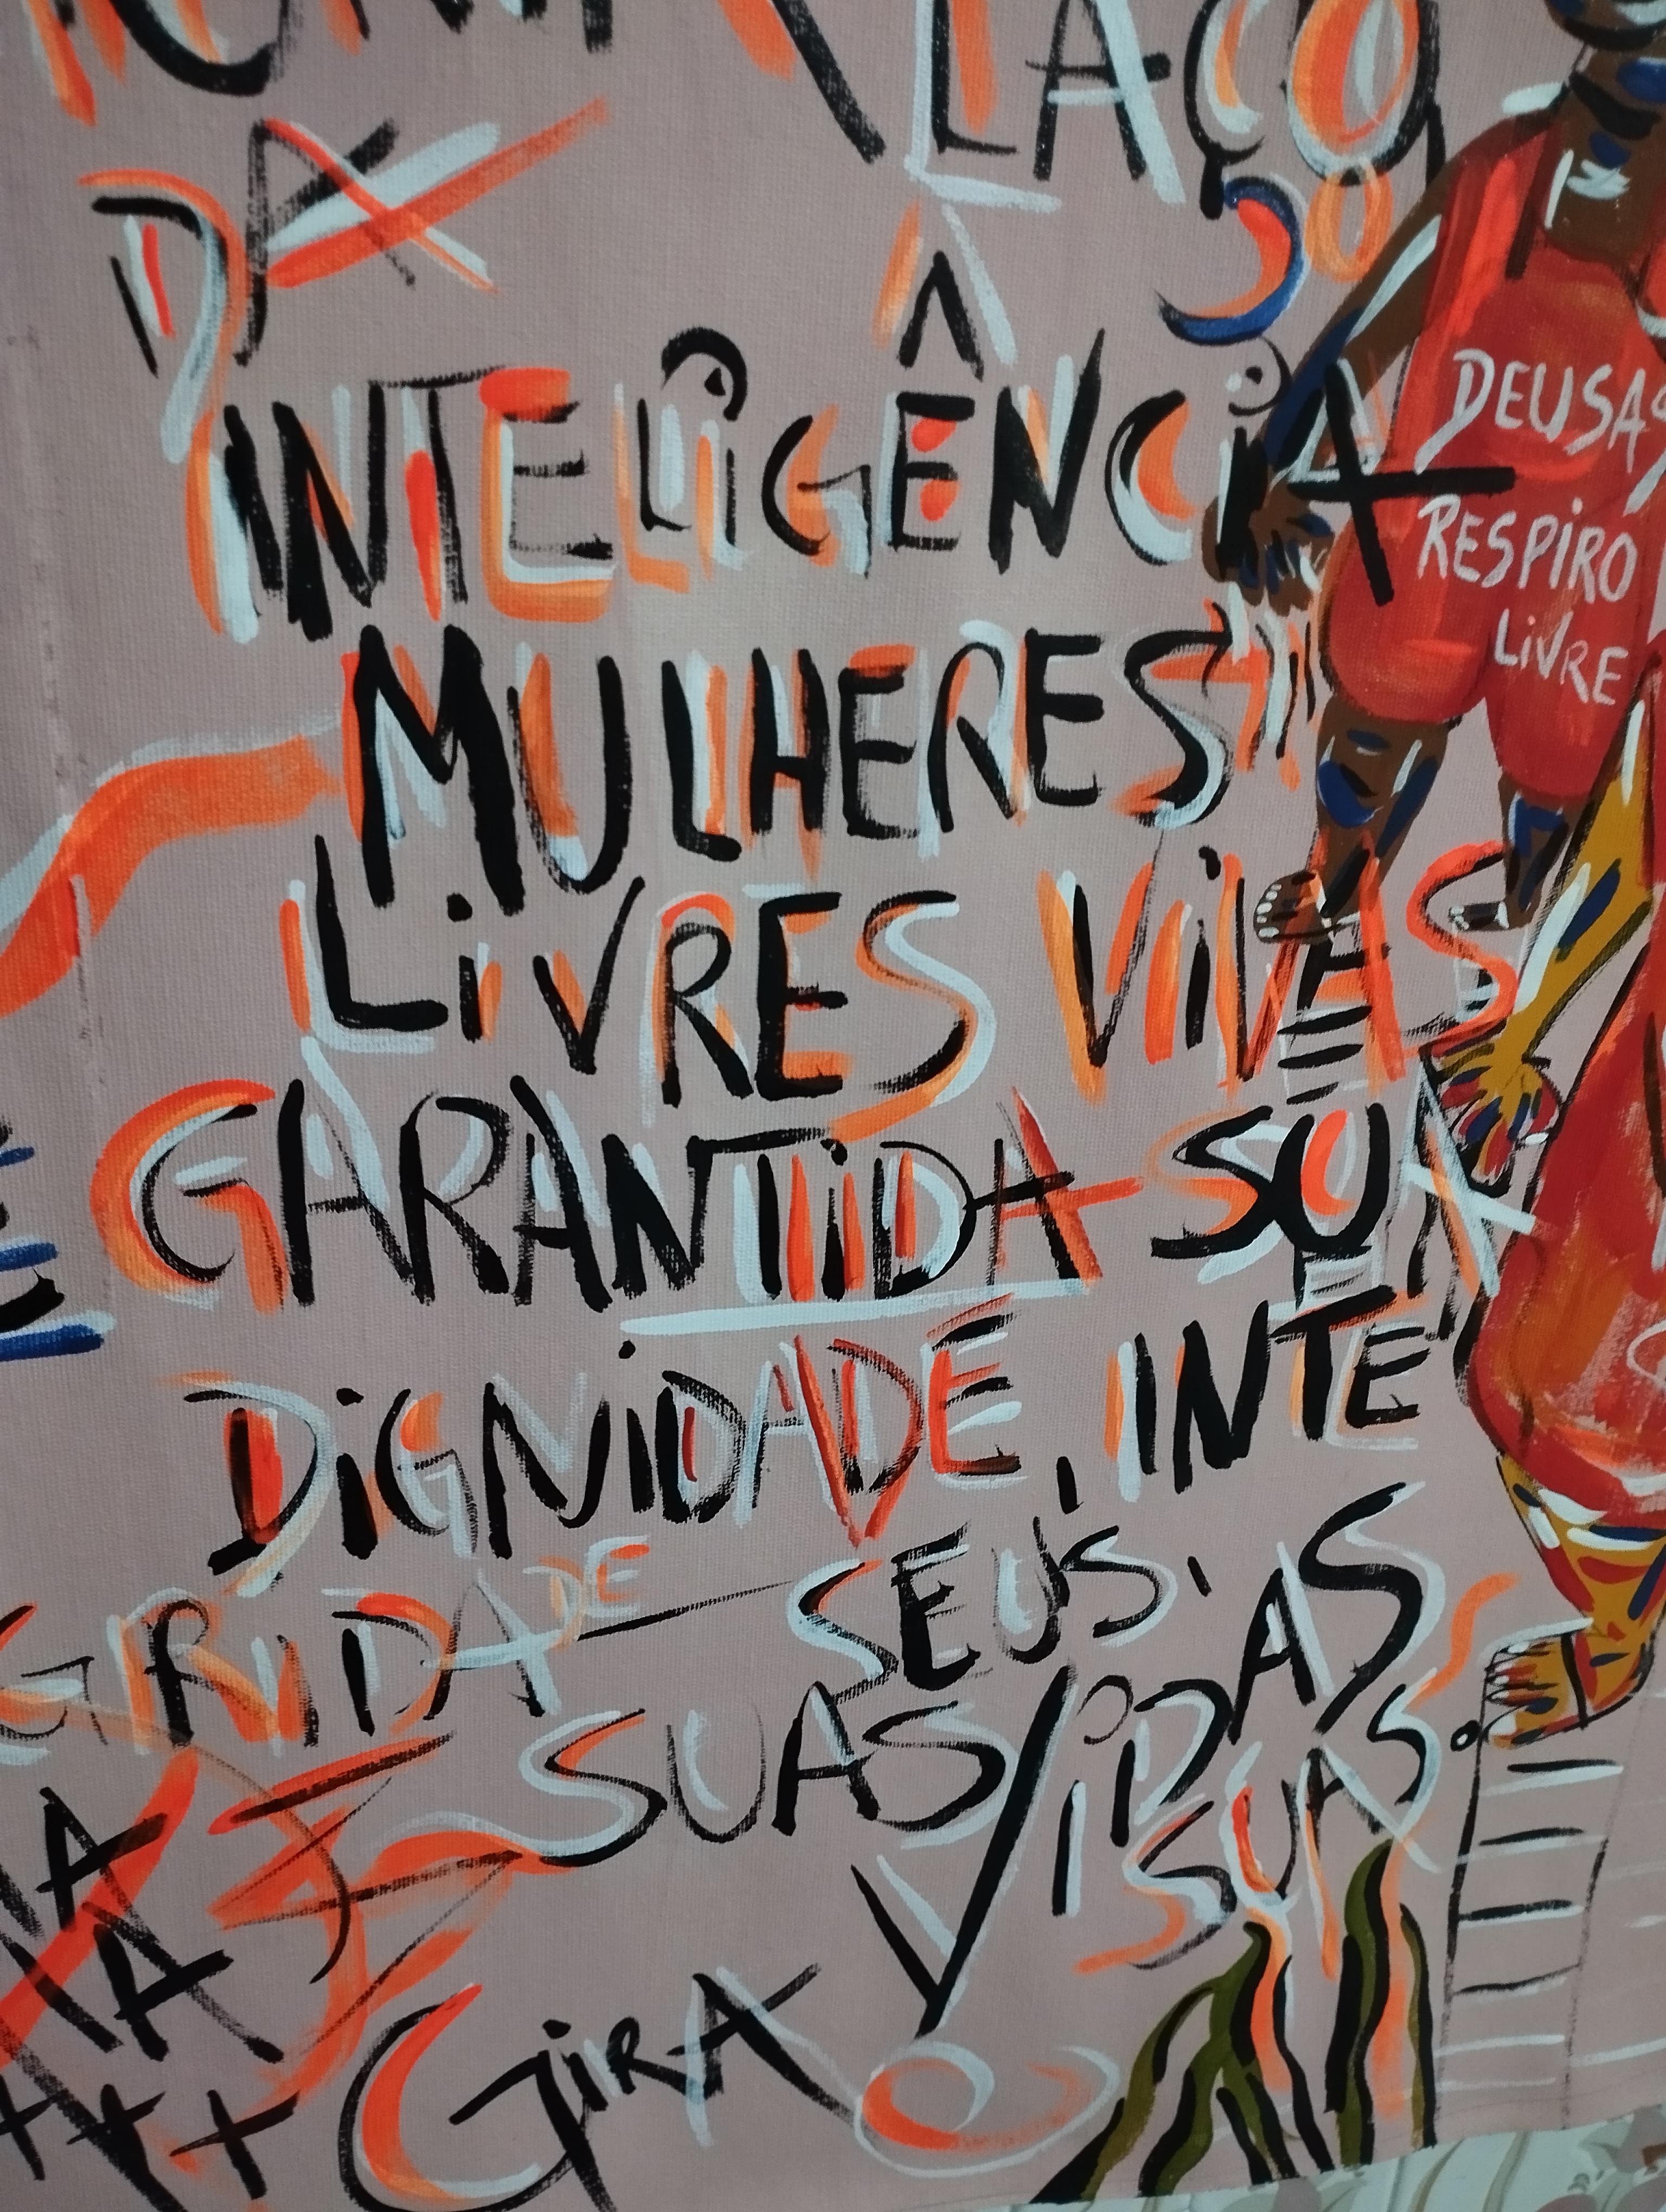 LAÇO
DA
INTELIGÊNCIA
MULHERES
LIVRES VIVAS
GARANTIDA SUA
DIGNIDADE, INTE
GRIDADE SEUS,
SUAS VIDAS
SUAS.
GIRA
DEUSAS
RESPIRO
LIVRE